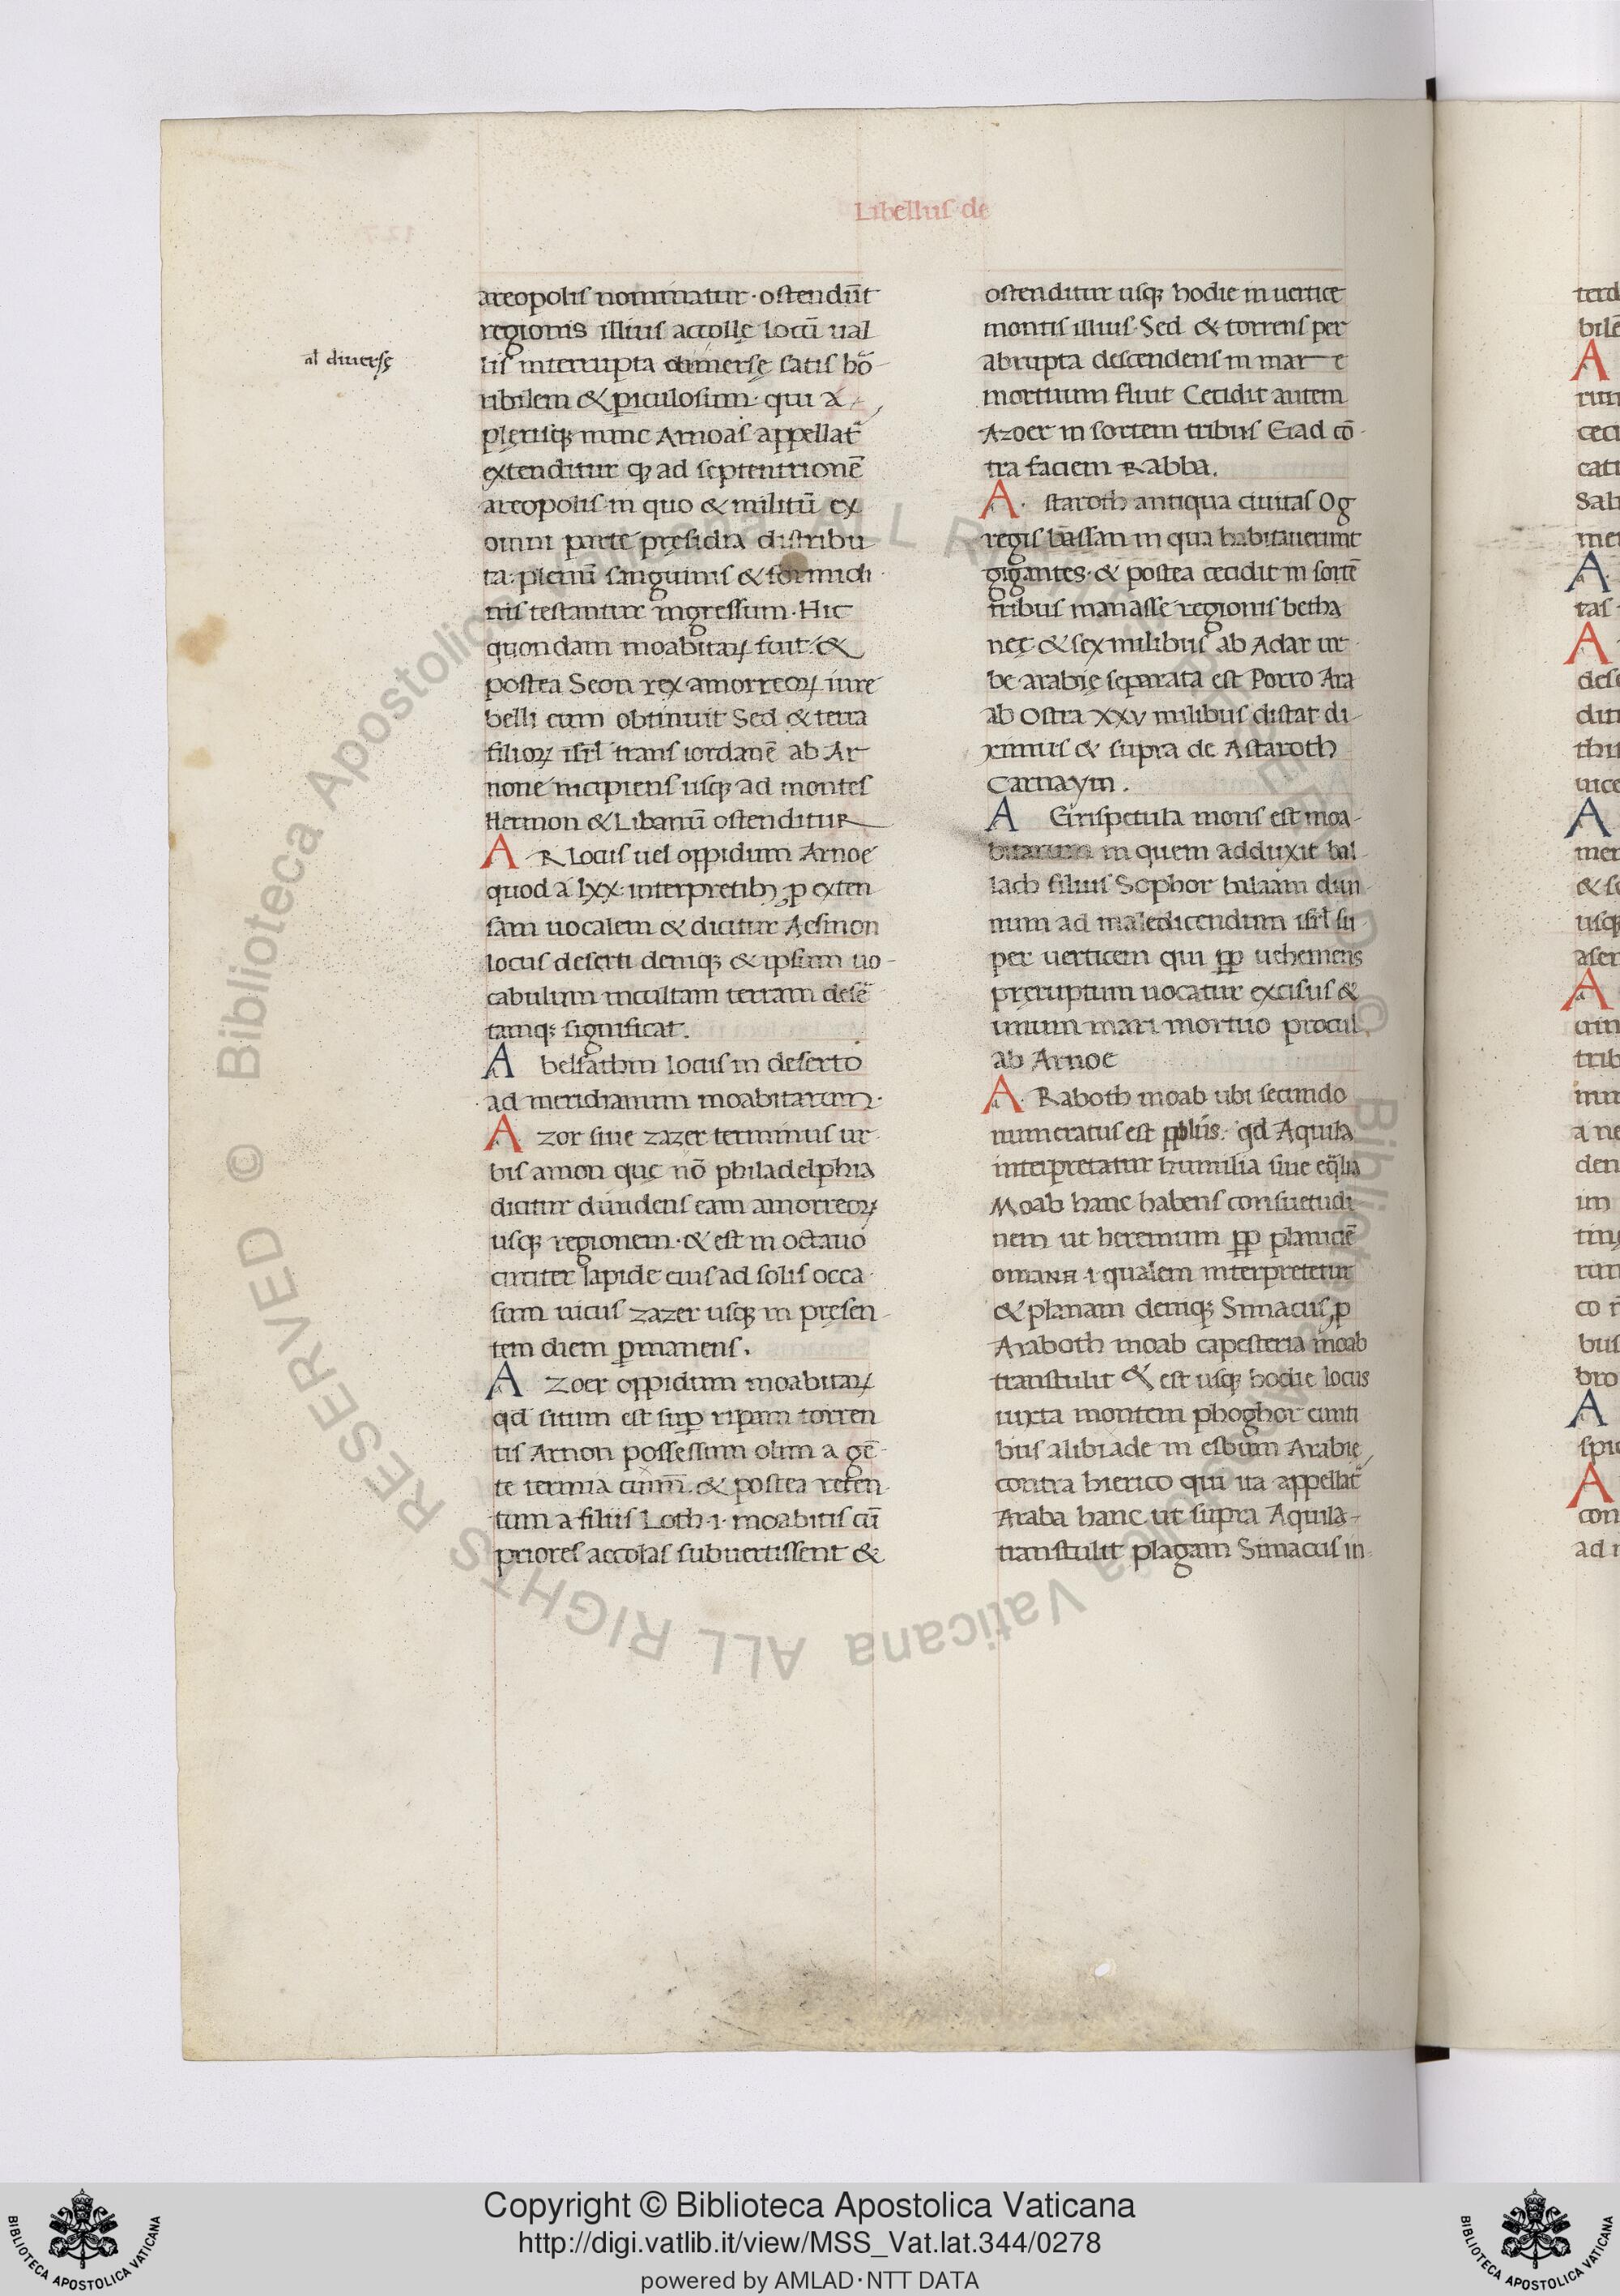 Libellus de
al diuersę
areopolis nominatur · ostendūt
regionis illius accolę locū ual
lis interrupta dimersę satis hō
ribilem & piculosum · qui a
plęrisq; nunc Arnoas appellat̄
extenditur q; ad septentrionē
areopolis in quo & militū ex
omni parte pręsidia distribu
ta: plenū sanguinis & formidi
nis testantur ingressum · Hic
quondam moabitaꝝ fuit: &
postea Seon rex amorreoꝝ iure
belli eum obtinuit Sed & terra
filioꝝ isrł trans iordanē ab Ar
none incipiens usq; ad montes
Hermon & Libanū ostenditur
AR Locus uel oppidum Arnoe
quod a lxx: interpretib; p exten
sam uocalem & dicitur Aesmon
locus deserti deniq; & ipsum uo-
cabulum incultam terram dese
tamq; significat.
Abelsathin locus in deserto
ad meridianum moabitarum.
Azor siue zazer terminus ur
bis amon quę nō philadelphia
dicitur diuidens eam amorreoꝝ
usq; regionem · & est in octauo
circiter lapide eius ad solis occa
sum uicus zazer usq; in pręsen-
tem diem ꝑmanens.
Azoer oppidum moabitaꝝ
qd situm est suꝑ ripam torren
tis Arnon possessum olim a gē-
te termia cīum̄. & postea reten-
tum a filiis Loth · i · moabitis cū
priores accolas subuertissent &
ostenditur usq; hodie in uertice
montis illius · Sed & torrens per
abrupta descendens in mar e
mortuum fluit Cecidit autem
Azoer in sortem tribus Gad cō-
tra faciem Rabba.
A· staroth antiqua ciuitas Og
regis bassan in qua habitauerunt
gigantes · & postea cecidit in sortē
tribus manasse regionis betha
neę · & sex milibus ab Adar ur
be arabię separata est Porro Ara
ab Ostra XXV milibus distat di-
ximus & supra de Astaroth
Carnaym.
A Grispecula mons est moa-
bitarum in quem adduxit bal
lach filius Sephor balaam diui
num ad maledicendum isrł su
per uerticem qui ꝓp uehemens
pręruptum uocatur excisus &
imum mari mortuo procul
ab Arnoe
A· Raboth moab ubi secundo
numeratus est pplus. qd Aquila
interpretatur humilia siue eqlia
Moab hanc habens consuetudi
nem ut heremum ꝓp planiciē
· i · qualem interpretetur
& planam deniq; Simacus, p
Araboth moab capesteria moab
transtulit & est usq; hodie locus
iuxta montem phoghor eunti
bus alibiade in esbum Arabię
contra hierico qui ita appellat̄
Araba hanc ut supra Aquila-
transtulit plagam Simacus in-
Copyright © Biblioteca Apostolica Vaticana
http://digi.vatlib.it/view/MSS_Vat.lat.344/0278
powered by AMLAD · NTT DATA